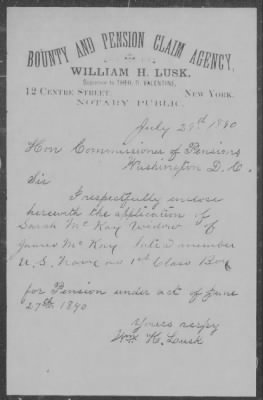 BOUNTY AND PENSION CLAIM AGENCY,
OF
WILLIAM H. LUSK.
Successor to THEO. R. VALENTINE,
12 CENTRE STREET, NEW YORK.
NOTARY PUBLIC.
July 29th 1890
Hon Commissioner of Pensions
Washington D. C.
Sir
I respectfully enclose
herewith the application of
Sarah McKay Widow of
James McKay late a member
U.S. Navy as 1st Class Boy
for Pension under act of June
27th 1890
Yours respy
Wm H. Lusk